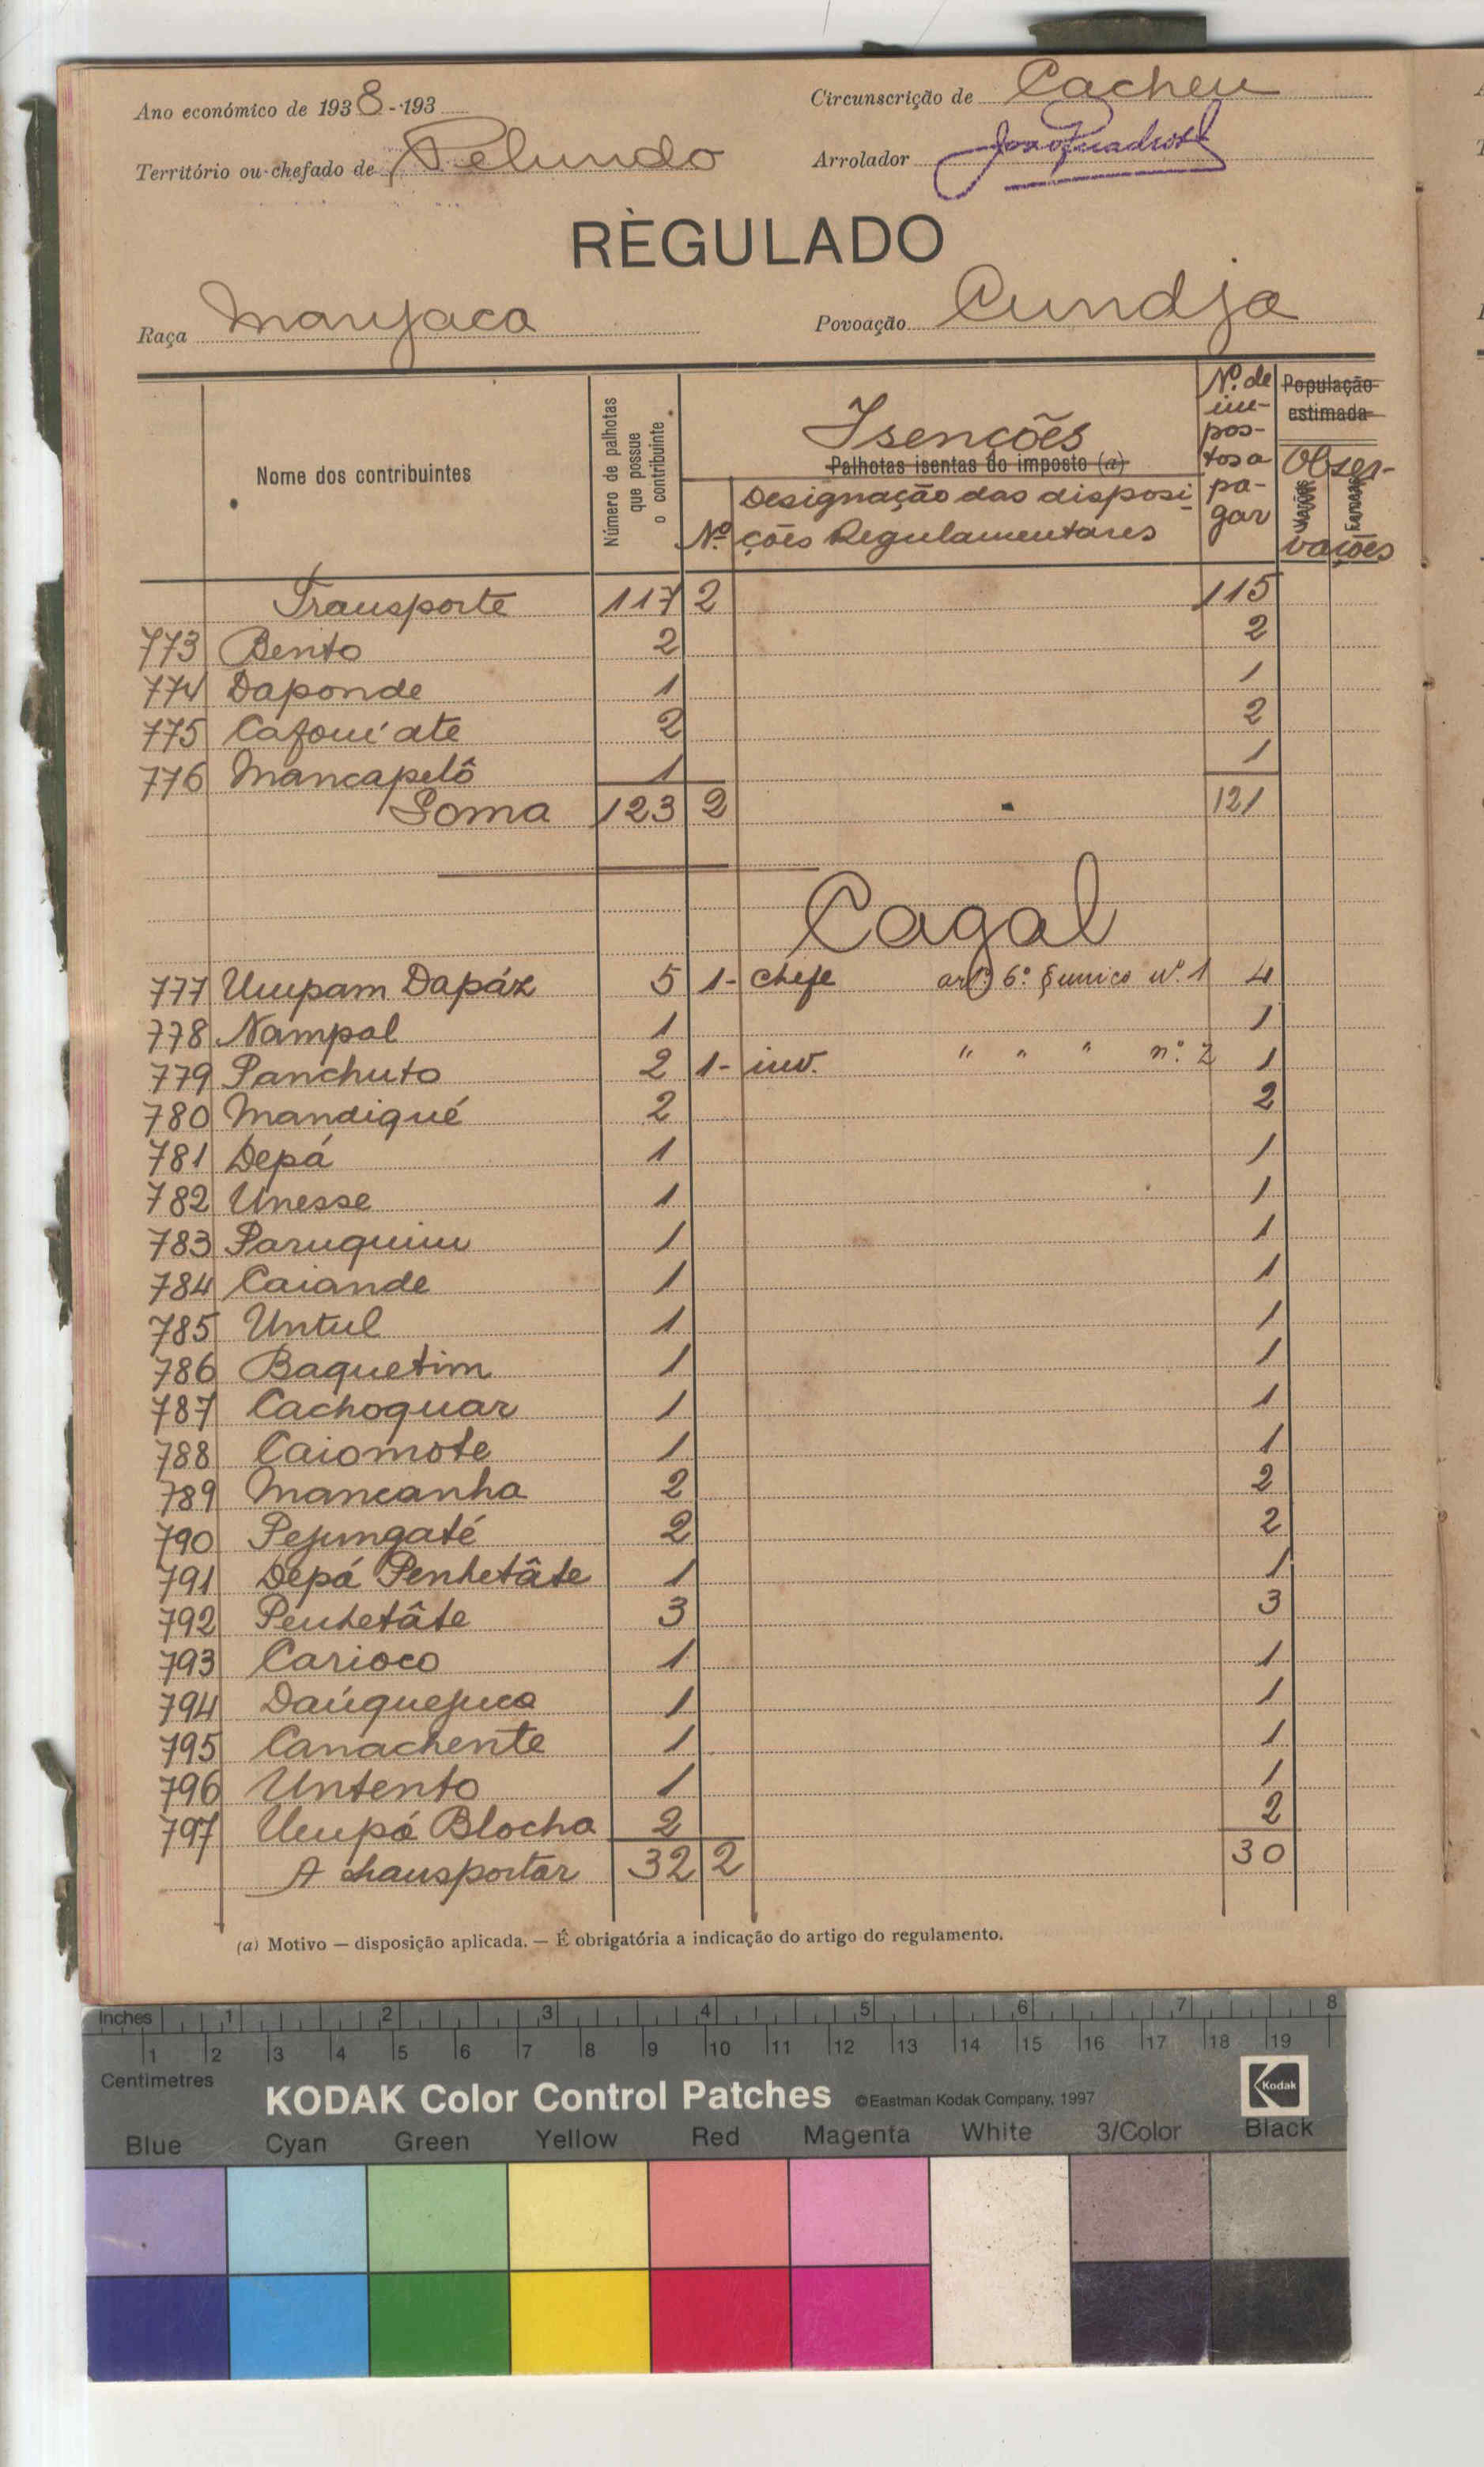 Ano económico de 1938-193
Circunscrição de Cacheu
Território ou chefado de Pelundo
Arrolador
RÈGULADO
Raça Manjaca
Povoação Cundja
Nome dos contribuintes
Número de palhotas que possue o contribuinte
Isenções
Palhotas isentas do imposto (a)
Nº
Designação das disposições Regulamentares
Nº. de impostos a pagar
População estimada
Observações
Transporte 117 2 115
773 Bento 2 2
774 Daponde 1 1
775 Cafomi'ate 2 2
776 Mancapelô 1 1
Soma 123 2 121
Cagal
777 Umpam Dapáz 5 1- chefe artº 6º § unico nº 1 4
778 Nampol 1 1
779 Panchuto 2 1- inv. " " " nº 2 1
780 Mandiqué 2 2
781 Depá 1 1
782 Unesse 1 1
783 Paruquim 1 1
784 Caiande 1 1
785 Untul 1 1
786 Baquetim 1 1
787 Cachoquar 1 1
788 Caiomote 1 1
789 Mancanha 2 2
790 Pejungaté 2 2
791 Depá Penhetâte 1 1
792 Penhetâte 3 3
793 Carioco 1 1
794 Daúquejuca 1 1
795 Canachente 1 1
796 Untento 1 1
797 Umpá Blocha 2 2
A transportar 32 2 30
(a) Motivo — disposição aplicada. — É obrigatória a indicação do artigo do regulamento.
Inches 1 2 3 4 5 6 7 8
1 2 3 4 5 6 7 8 9 10 11 12 13 14 15 16 17 18 19
Centimetres
KODAK Color Control Patches ©Eastman Kodak Company, 1997 Kodak
Blue Cyan Green Yellow Red Magenta White 3/Color Black